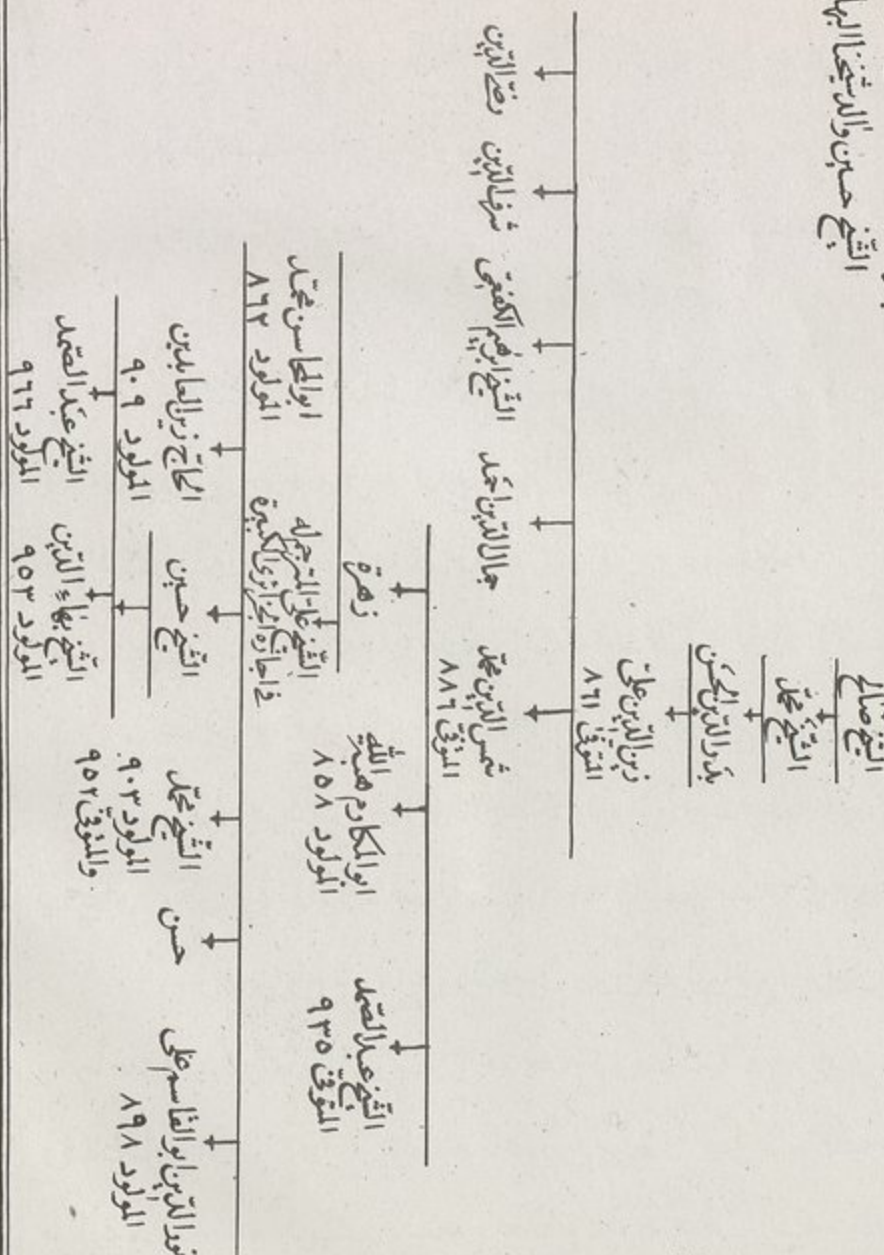 الشيخ حسين والد شيخنا البها
الشيخ صالح
الشيخ محمد
بدر الدين الحسن
زين الدين علي
المتوفى ٨٦١
رضي الدين
شرف الدين
الشيخ ابرهيم الكفعمي
جمال الدين احمد
شمس الدين محمد
المتوفى ٨٨٦
زهرة
ابو المكارم هبة الله
المولود ٨٥٨
الشيخ عبد الصمد
المتوفى ٩٣٥
ابو المحاسن محمد
المولود ٨٦٢
الشيخ علي المترجم له
في اجازة الجزائري الكبيرة
الحاج زين العابدين
المولود ٩٠٩
الشيخ حسين
الشيخ محمد
المولود ٩٠٣
والمتوفى ٩٥٢
حسن
نور الدين ابو القاسم علي
المولود ٨٩٨
الشيخ عبد الصمد
المولود ٩٦٦
الشيخ بهاء الدين
المولود ٩٥٣